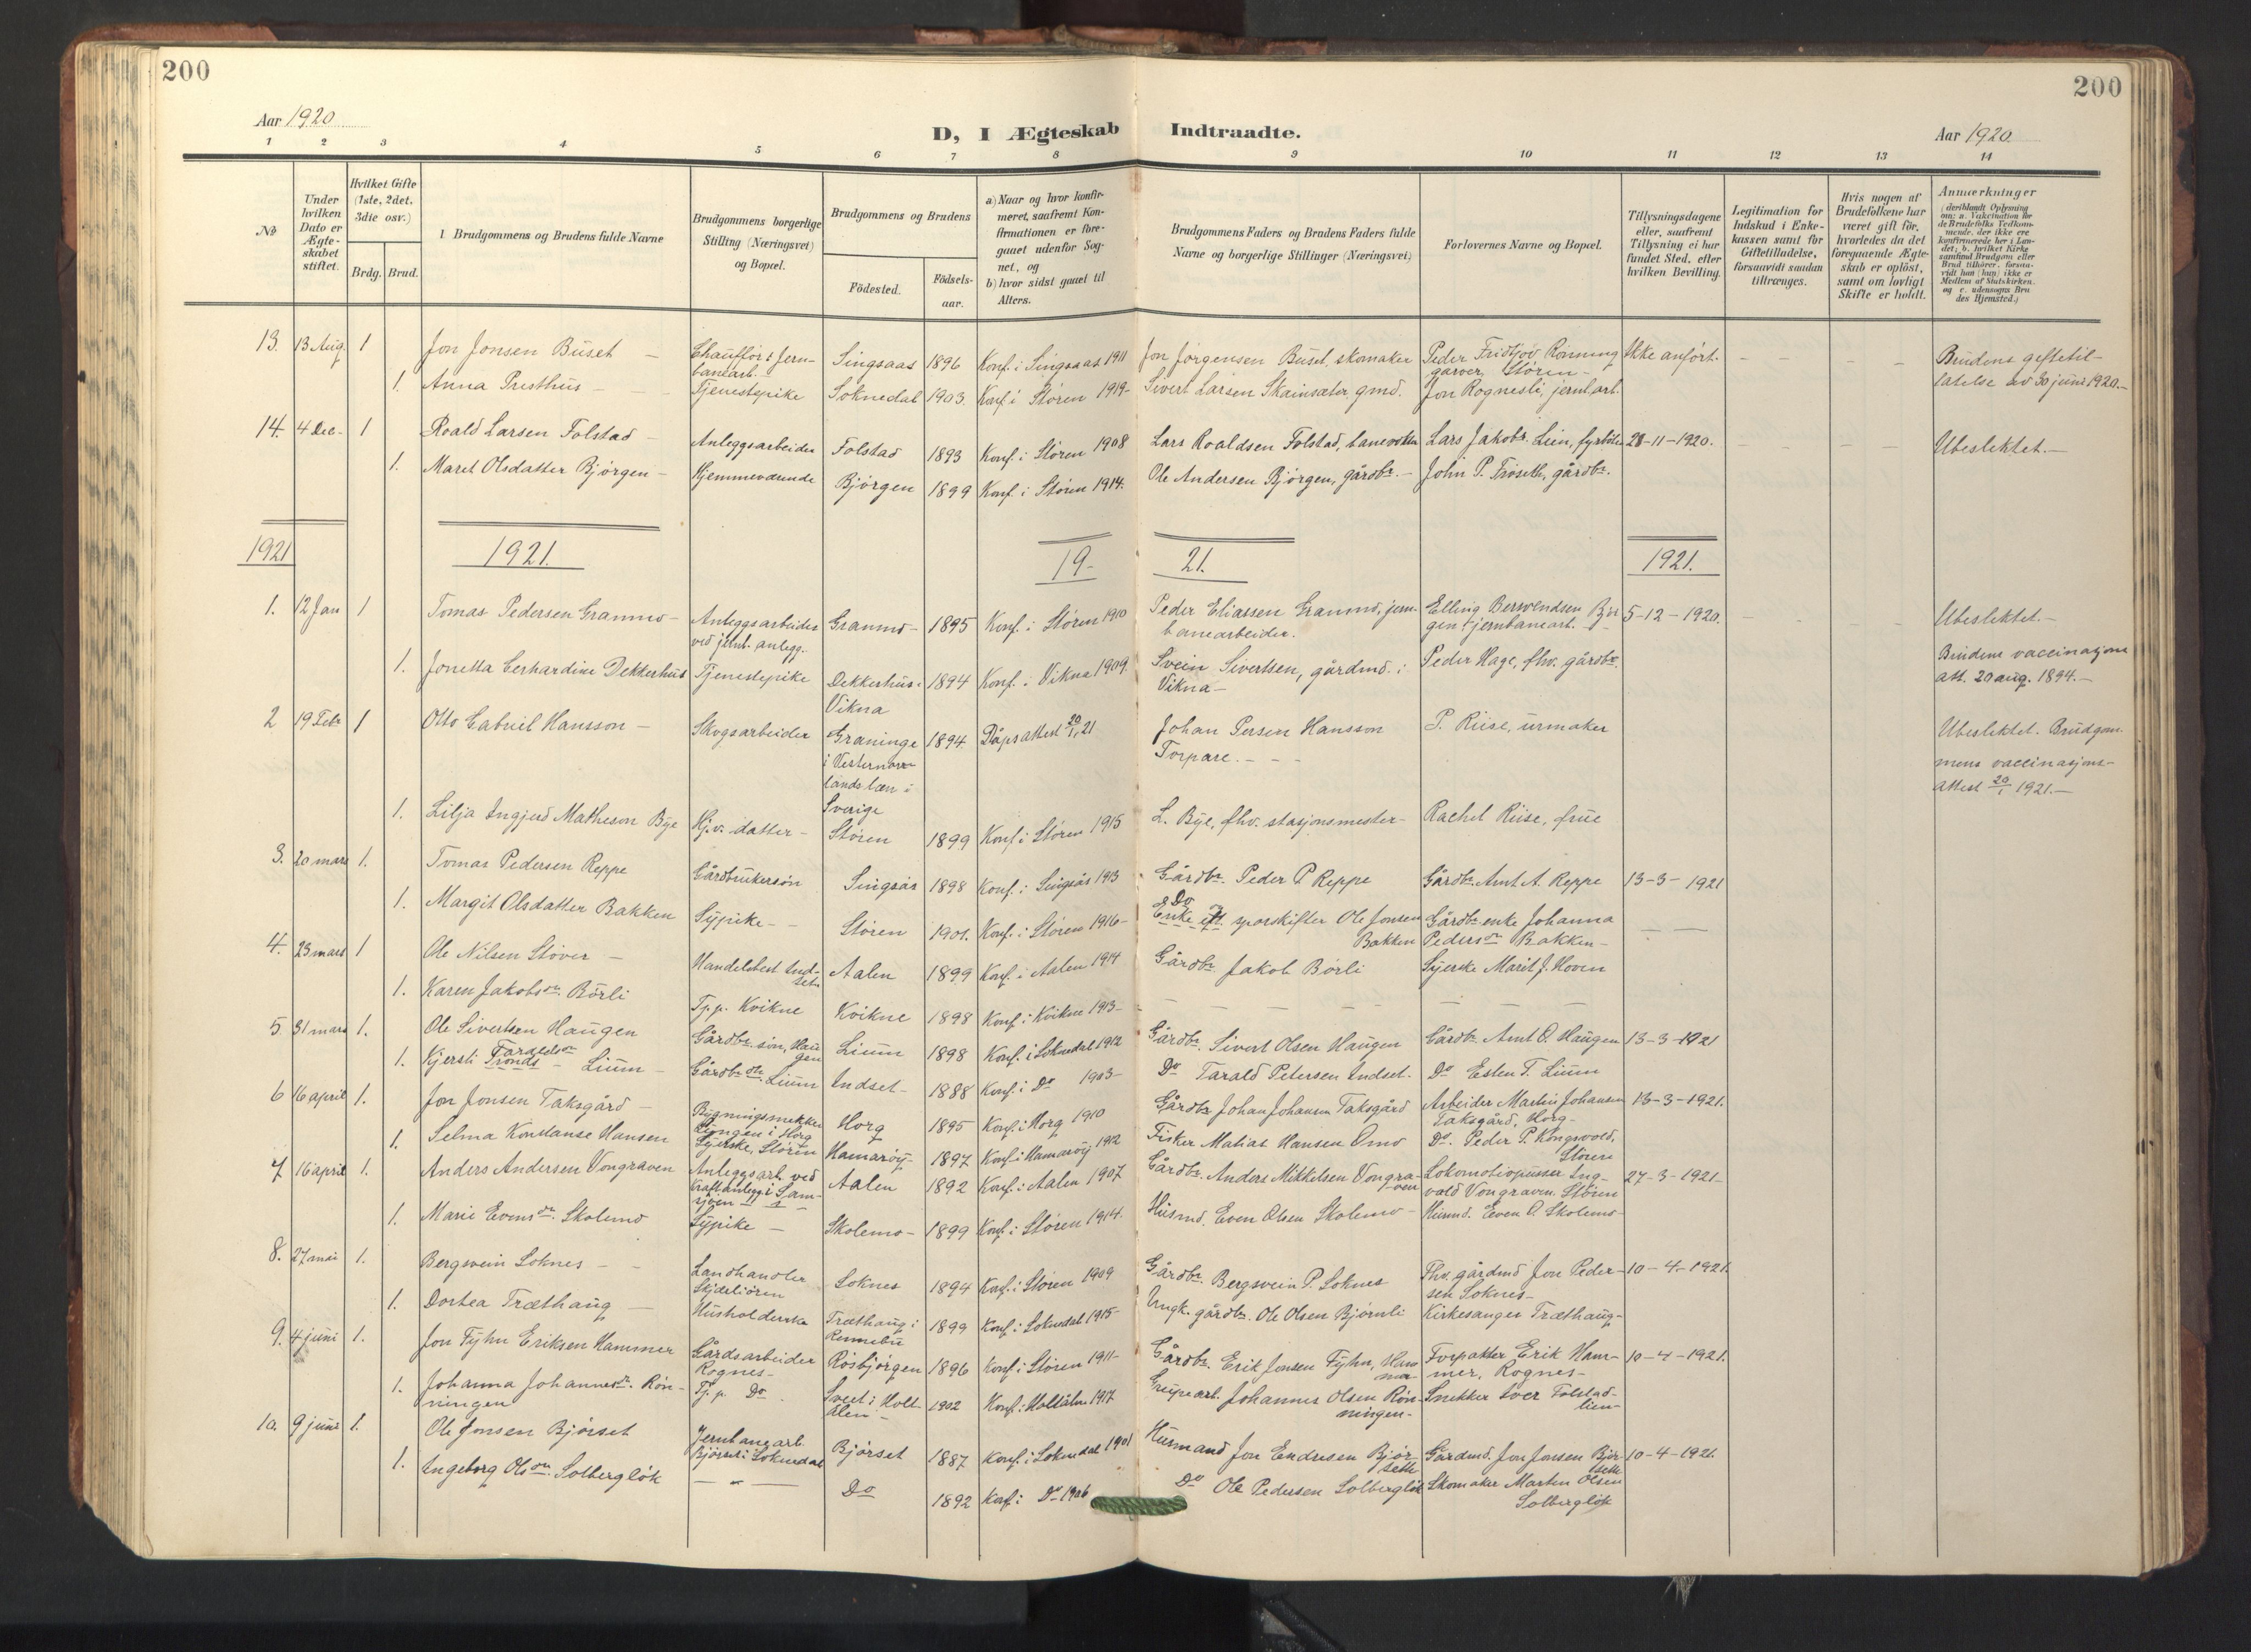 200
200
Aar 1920
D, I Ægteskab Indtraadte.
Aar 1920.
1 2 3 4 5 6 7 8 9 10 11 12 13 14
No
Under hvilken Dato er Ægteskabet stiftet.
Hvilket Gifte (1ste, 2det, 3die osv.)
Brdg. Brud.
Brudgommens og Brudens fulde Navne
Brudgommens borgerlige Stilling (Næringsvei) og Bopæl.
Brudgommens og Brudens
Fødested.
Fødsels-aar.
a) Naar og hvor konfirmeret, saafremt Konfirmationen er foregaaet udenfor Sognet, og
b) hvor sidst gaaet til Alters.
Brudgommens Faders og Brudens Faders fulde Navne og borgerlige Stillinger (Næringsvei)
Forlovernes Navne og Bopæl.
Tillysningsdagene eller, saafremt Tillysning ei har fundet Sted, efter hvilken Bevilling.
Legitimation for Indskud i Enkekassen samt for Giftetilladelse, forsaavidt saadan tiltrænges.
Hvis nogen af Brudefolkene har været gift før, hvorledes da det foregaaende Ægteskab er opløst, samt om lovligt Skifte er holdt.
Anmærkninger
(deriblandt Oplysning om: a. Vakcination for de Brudefolks Vedkommende, der ikke ere konfirmerede her i Landet; b. hvilket Kirkesamfund Brudgom eller Brud tilhører, forsaavidt han (hun) ikke er Medlem af Statskirken, og c. udensogns Brudes Hjemsted.)
13. 13 Aug. 1 Jon Jonsen Buset — Chauffør & Jernbanearb. Singsaas 1896 Konf. i Singsaas 1911 Jon Jørgensen Buset, skomaker Peder Fridtjov Rønning garver, Støren - Ikke anført. Brudens giftetillatelse av 30 juni 1920.-
1. Anna Presthus Tjenestepike Soknedal 1903. Konf. i Støren 1919- Sivert Larsen Skainsæter gmd. Jon Rognesli, jernb.arb.
14. 4 Dec. 1 Roald Larsen Folstad - Anleggsarbeider Folstad 1893 Konf. i Støren 1908 Lars Roaldsen Folstad, banevokter Lars Jakobs. Lien, fyrbøter 28-11-1920. Ubeslektet.-
1. Maret Olsdatter Bjørgen - Hjemmeværende Bjørgen 1899 Konf. i Støren 1914. Ole Andersen Bjørgen, gårdbr. - John P. Frøseth, gårdbr.
1921 1921. 19- 21. 1921.
1. 12 Jan 1 Tomas Pedersen Granmo - Anleggsarbeider ved jernb. anlegg. Granmo - 1895 Konf. i Støren 1910 Peder Eliassen Granmo, jernbanearbeider. Elling Berwendsen Bjørgen, jernbanearb. 5-12-1920. Ubeslektet.-
1. Jonetta Gerhardine Dekkerhus Tjenestepike Dekkerhus i Vikna 1894 Konf. i Vikna 1909. Svein Sivertsen, gårdmd. i Vikna - Peder Hage, fhv. gårdbr. Brudens vaccinasjons att. 20 aug. 1894.-
2 19 Febr 1 Otto Gabriel Hansson - Skogsarbeider Graninge i Vesternorrlands læn i Sverige 1894 Dåpsattest 20/1, 21 Johan Persen Hansson Torpare. - - P. Riise, urmaker Ubeslektet. Brudgommens vaccinasjonsattest 20/1 1921.-
1. Lilja Ingjerd Matheson Bye Hj.v. datter - Støren 1899 Konf. i Støren 1915 L. Bye, fhv. stasjonsmester - Rachel Riise, frue
3. 20 mars 1. Tomas Pedersen Reppe Gårdbrukersøn Singsås 1898 Konf. i Singsås 1913 Gårdbr. Peder P. Reppe Gårdbr. Arnt A. Reppe 13-3-1921
1. Margit Olsdatter Bakken Sypike - Støren 1901. Konf. i Støren 1916- Do Enke eft. sporskifter Ole Jonsen Bakken Gårdbr. enke Johanna Pedersdr. Bakken -
4. 23 mars 1 Ole Nilsen Støver - Handelsbest. Indset Aalen 1899 Konf. i Aalen 1914 Gårdbr. Jakob Børli Syerske Marit J. Hoven
1. Karen Jakobsdr. Børli Tj.p. Kvikne Kvikne 1898 Konf. i Kvikne 1913-
5. 31 mars 1. Ole Sivertsen Haugen Gårdbr. søn, Haugen Lium 1898 Konf. i Soknedal 1912 Gårdbr. Sivert Olsen Haugen Gårdbr. Arnt O. Haugen 13-3-1921
1. Kjersti Taraldsdr. Tronds - Lium - Gårdbr. dtr. Lium Indset - 1888 Konf. i Do 1903- Do Tarald Petersen Indset. Do Esten T. Lium
6 16 april 1. Jon Jonsen Taksgård - Bygningssnekker i Horg Horg 1895 Konf. i Horg 1910 Gårdbr. Johan Johansen Taksgård Arbeider Martin Johansen Taksgård, Horg - 13-3-1921.
1. Selma Konstanse Hansen Syerske, Støren Hamarøy - 1897 Konf. i Hamarøy 1912 Fisker Matias Hansen Do. Peder P. Kongsvold, Støren
7 16 april 1. Anders Andersen Vongraven Anleggsarb. ved Kraftanlegg i Samsjøen Aalen 1892 Konf. i Aalen 1907 Gårdbr. Anders Mikkelsen Vongraven Lokomotivpusser Ingvald Vongraven, Støren 27-3-1921-
1. Marie Evensdr. Skolmo Sypike - Skolemo - 1899 Konf. i Støren 1914. Husmd. Even Olsen Skolemo - Husmd. Even O. Skolemo
8. 27 mai 1. Bergsvein Soknes - - Landhandler Soknes 1894 Konf. i Støren 1909 Gårdbr. Bergsvein P. Soknes Fhv. gårdmd Jon Pedersen Soknes - 10-4-1921.
1. Dortea Træthaug - Husholderske Træthaug i Rennebu 1899 Konf. i Soknedal 1915- Ungk. gårdbr. Ole Olsen Bjørnli Kirkesanger Træthaug -
9. 4 juni 1. Jon Fyhn Eriksen Hammer Gårdsarbeider Rognes - Rosbjørgen 1896 Konf. i Støren 1911- Gårdbr. Erik Jonsen Fyhn, Hammer Forpakter Erik Hammer, Rognes - 10-4-1921.
1. Johanna Johannesdr. Rønningen Tj.p. Do i Holtålen - 1902 Konf. i Holtålen 1917 Johannes Olsen Rønningen - Snekker Iver Folstadlien -
10. 9 juni 1. Ole Jonsen Bjørset Jernbanearb. Bjørset i Soknedal Bjørset 1887 Konf. i Soknedal 1901 Husmand Jon Endresen Bjørseth Gårdmd. Jon Jonsen Bjørseth 10-4-1921.
1. Ingeborg Olsdr. Solbergløk - " - Do 1892 Konf. i Do 1906 Do Ole Pedersen Solbergløk Skomaker Martin Olsen Solbergløk